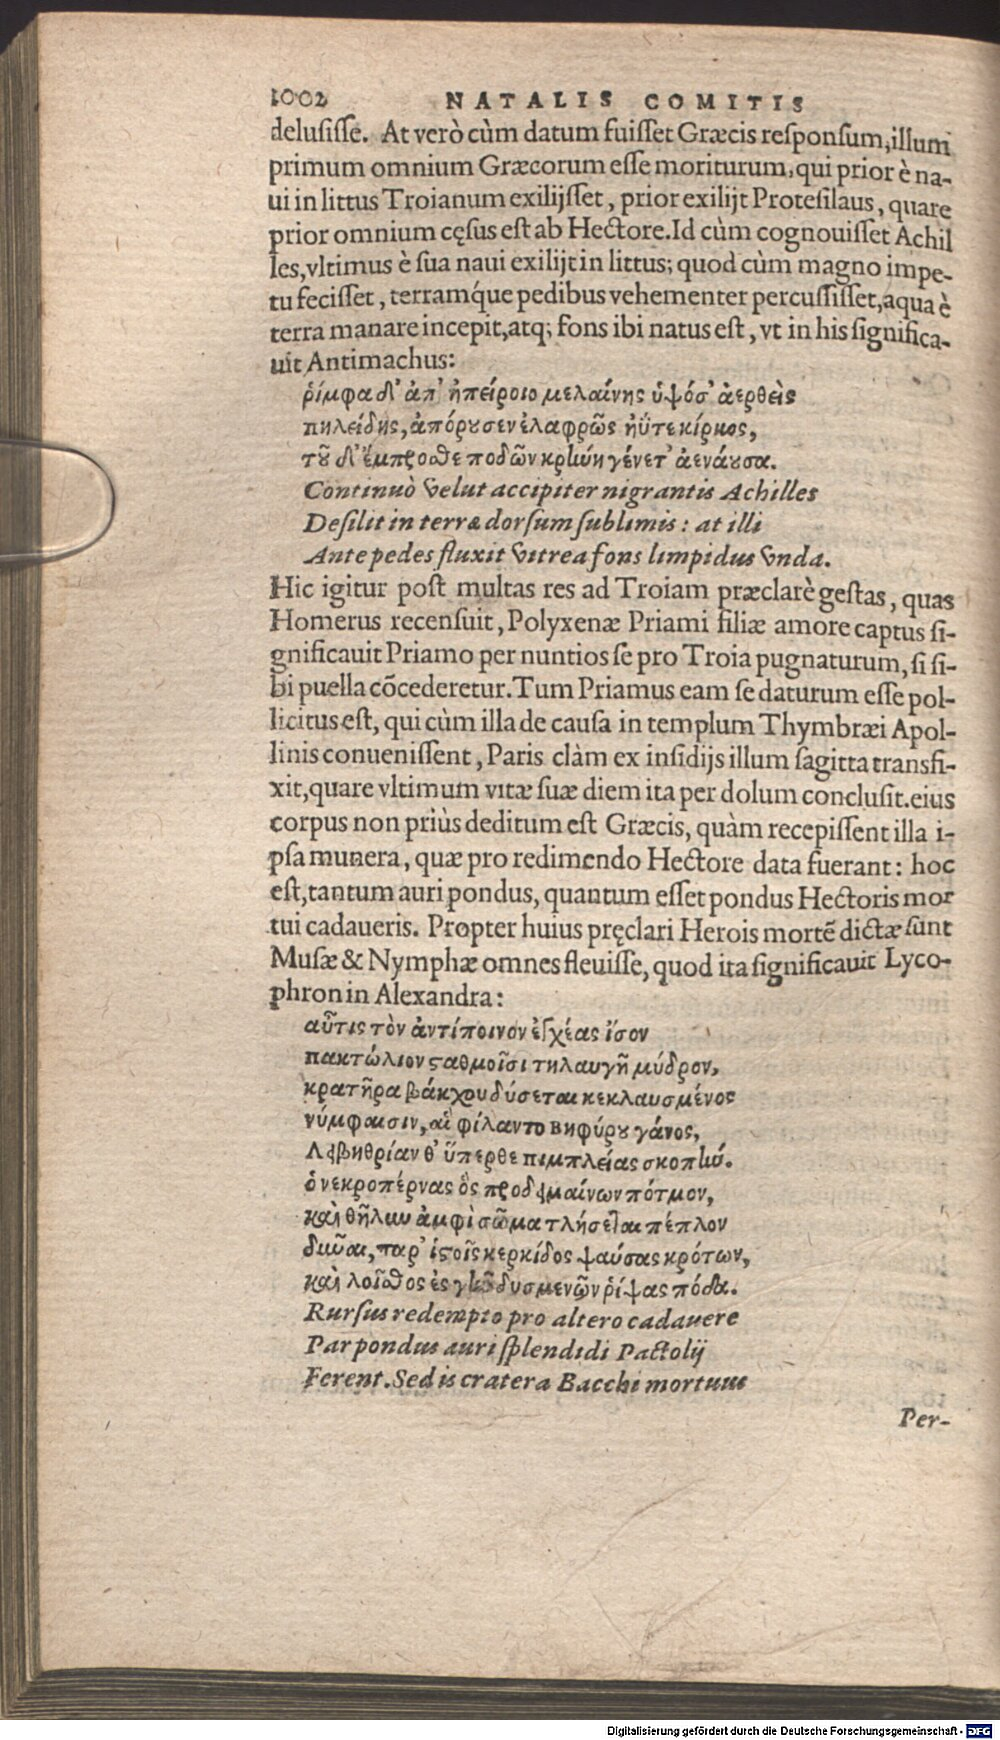 1002 NATALIS COMITIS
delusisse. At verò cùm datum fuisset Græcis responsum, illum
primum omnium Græcorum esse moriturum, qui prior è na-
ui in littus Troianum exilijsset, prior exilijt Protesilaus, quare
prior omnium cęsus est ab Hectore. Id cùm cognouisset Achil
les, vltimus è sua naui exilijt in littus; quod cùm magno impe-
tu fecisset, terramq́ue pedibus vehementer percussisset, aqua è
terra manare incepit, atq; fons ibi natus est, vt in his significa-
uit Antimachus:
ῥίμφα δ' ἀπ' ἠπείροιο μελαίνης ὑψόσ' ἀερθεὶς
πηλείδης, ἀπόρουσεν ἐλαφρῶς ἠΰτε κίρκος,
τοῦ δ' ἔμπροσθε ποδῶν κρήνη γένετ' ἀενάουσα.
Continuò velut accipiter nigrantis Achilles
Desilit in terræ dorsum sublimis: at illi
Ante pedes fluxit vitrea fons limpidus vnda.
Hic igitur post multas res ad Troiam præclarè gestas, quas
Homerus recensuit, Polyxenæ Priami filiæ amore captus si-
gnificauit Priamo per nuntios se pro Troia pugnaturum, si si-
bi puella cōcederetur. Tum Priamus eam se daturum esse pol-
licitus est, qui cùm illa de causa in templum Thymbræi Apol-
linis conuenissent, Paris clàm ex insidijs illum sagitta transfi-
xit, quare vltimum vitæ suæ diem ita per dolum conclusit. eius
corpus non priùs deditum est Græcis, quàm recepissent illa i-
psa munera, quæ pro redimendo Hectore data fuerant: hoc
est, tantum auri pondus, quantum esset pondus Hectoris mor
tui cadaueris. Propter huius pręclari Herois mortē dictæ sunt
Musæ & Nymphæ omnes fleuisse, quod ita significauit Lyco-
phron in Alexandra:
αὖτις τὸν ἀντίποινον ἐγχέας ἴσον
πακτώλιον σταθμοῖσι τηλαυγῆ μύδρον,
κρατῆρα βάκχου δύσεται κεκλαυσμένος
νύμφαισιν, αἳ φίλαντο βηφύρου γάνος,
Λειβηθρίαν θ' ὕπερθε πιμπλείας σκοπήν.
ὁ νεκροπέρνας ὃς προδειμαίνων πότμον,
καὶ θῆλυν ἀμφὶ σῶμα τλήσεται πέπλον
δῦναι, παρ' ἱστοῖς κερκίδος ψαύσας κρότων,
καὶ λοῖσθος ἐς γῆν δυσμενῶν ῥίψας πόδα.
Rursus redempto pro altero cadauere
Par pondus auri splendidi Pactolij
Ferent. Sed is cratera Bacchi mortuus
Per-
Digitalisierung gefördert durch die Deutsche Forschungsgemeinschaft - DFG